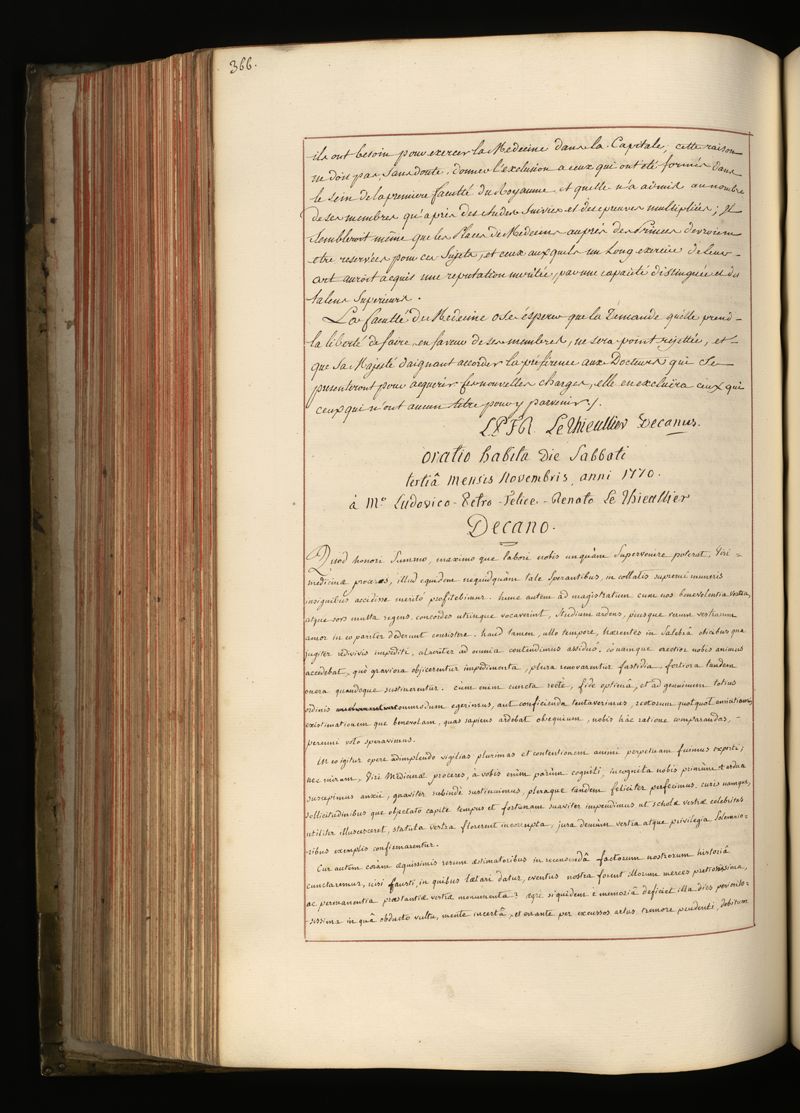 366.
ils ont besoin pour exercer la Medecine dans la Capitale, cette raison
ne doit pas, sans doute, donner l'exclusion a ceux qui ont été formés dans
le sein de la premiere faculté du Royaume et quelle n'a admis au nombre
de ses membres qu'après des études suivies et des epreuves multipliées; Il
sembleroit même que les Places de Medecins auprès des Princes devroient
etre reservées pour ces Sujets, et ceux auxquels un Long exercice de leur
art auroit acquis une reputation meritée, par une capacité distinguée et des
talens Superieurs.
La faculté de Medecine ose éspérer que la Demande quelle prend
la liberté de faire en faveur de ses membres, ne sera point rejettée, et
que Sa Majesté daignant accorder la préférence aux Docteurs qui se
presenteront pour acquerir ses nouvelles charges, elle en excluira ceux qui
ceux qui n'ont aucun titre pour y parvenir ./.
L.P.F.R. Le Thieullier Decanus.
Oratio habita Die Sabbati
tertiâ Mensis Novembris, anni 1770.
à Mo Ludovico-Petro-Felice-Renato Le Thieullier
Decano.
Quod honori Summo, maximo que labori nobis unquàm Supervenire poterat, Viri
medicinæ proceres, illud equidem nequidquàm tale Sperantibus, in collatis supremi muneris
insignibus accidisse meritò profitebimur. hunc autem ad magistratum cum nos benevolentia vestra,
atque sors multa regens, concordes utrinque vocaverint, Studium ardens, piusque rerum vestrarum
amor in eo pariter dederunt consistere. haud tamen, ullo tempore, hærentes in Salebrâ obicibus que
jugiter redivivis impediti, alacriter ad omnia contendimus assiduò, eò namque erectior nobis animus
accedebat, quò graviora objicerentur impedimenta, plura renovarentur fastidia fortiora tandem
onera quandoque sustinerentur. cum enim cuncta rectè, fide optimâ, et ad genuinum totius
ordinis commodum egerimus, aut conficienda tentaverimus, rectorum quotquot
existimationem que benevolam, quas sapiens ardebat obsequium, nobis hâc ratione comparandas,
perenni voto speravimus.
In eo igitur opere adimplendo vigilias plurimas et contentionem animi perpetuam fuimus experti;
nec mirum, Viri Medicinæ proceres, à vobis enim parùm cogniti, incognita nobis primùm et ardua
suscepimus anxii, graviter subindè sustinuimus, pleraque tandem feliciter perfecimus. curis namque,
sollicitudinibus que objectato capite tempus et fortunam suaviter impendimus ut scholæ vestræ celebritas
utiliter illucesceret, statuta vestra florerent incorrupta, jura demùm vestra atque privilegia Solemnio-
ribus exemplis confirmarentur.
Cur autem coràm æquissimis rerum æstimatoribus in recensendâ factorum nostrorum historiâ
cunctaremur, nisi fausti, in quibus lætari datur, eventus nostra forent illorum merces pretiosissima,
ac permanentia præstantiæ vestræ monumenta? ægrè siquidem è memoriâ deficiet illa dies periculo-
-sissima in quâ obducto vultu, mente incertâ, et errante per excussos artus tremore pendenti, debitum